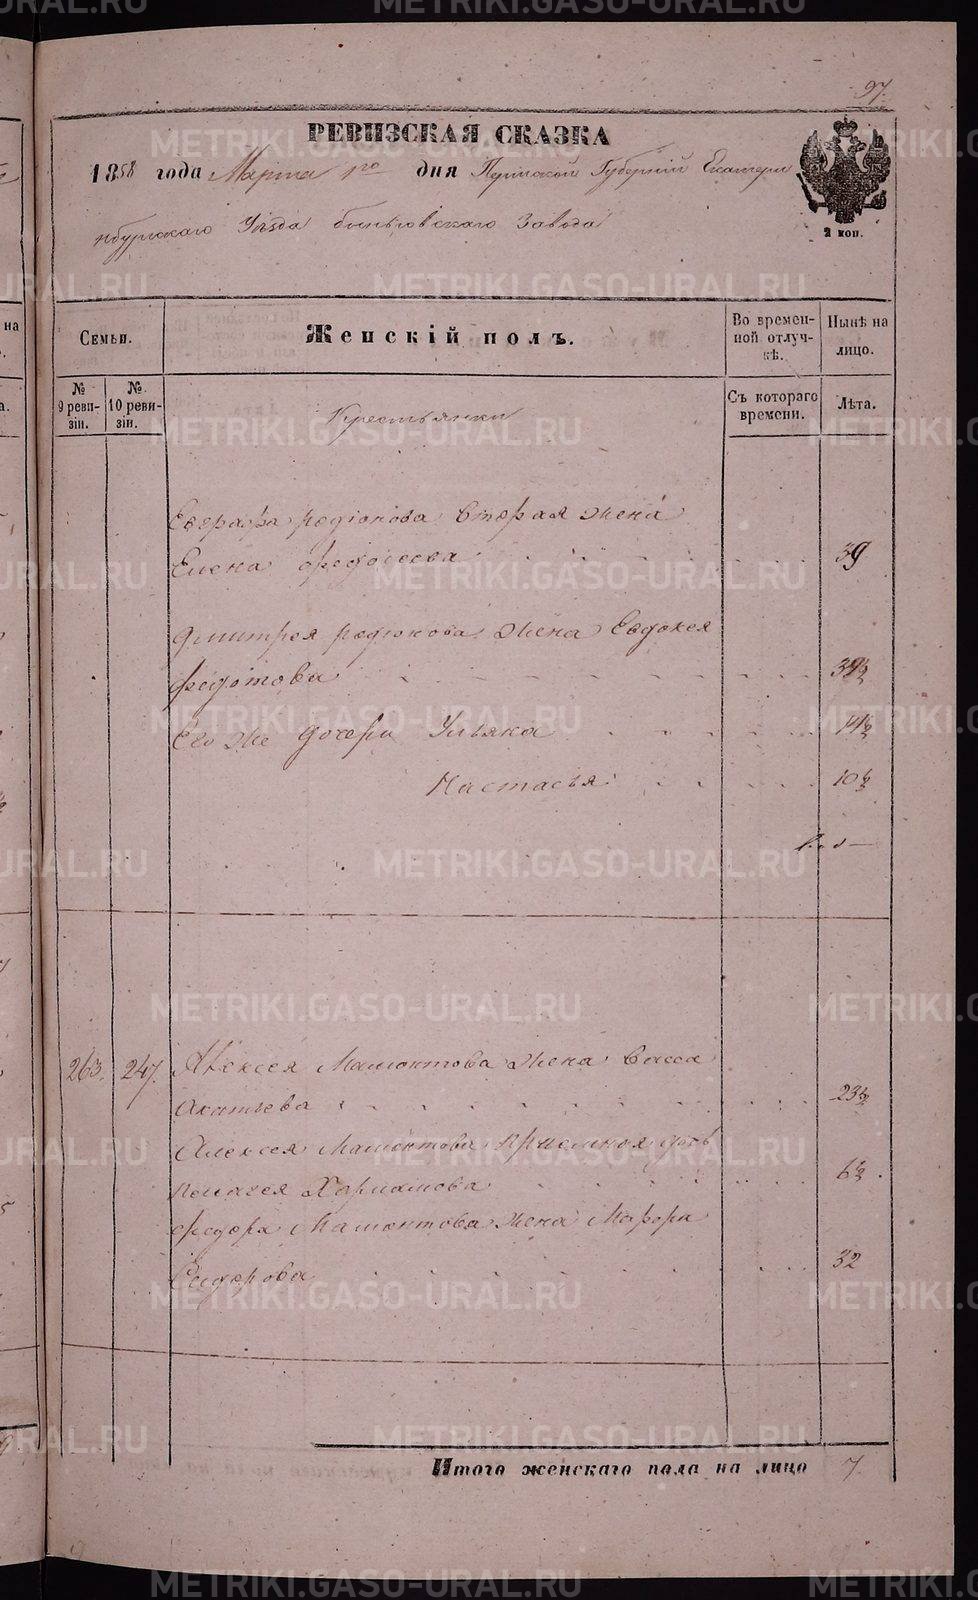 97.
РЕВИЗСКАЯ СКАЗКА
1858 года Марта 1го дня Пермской Губерніи Екатери
нбургскаго Уѣзда Завода
2 коп.
Семьи.
Женскій полъ.
Во времен-
ной отлуч-
кѣ.
Нынѣ на
лицо.
№
9 реви-
зіи.
№
10 реви-
зіи.
Крестьянки
Съ котораго
времени.
Лѣта.
Евграфа родіонова вторая жена
Елена федосеева 39
Дмитрея родионова жена Евдокея
федотова
Его же дочери Ульяна 14½
Настасья 10½
263. 247. Алексея Мамонтова жена Васса
23½
Алексея Мамонтова приемная дочь
Пелагея 6½
федора Мамонтова жена Марфа
Сидорова 32
Итого женскаго пола на лицо 7
METRIKI.GASO-URAL.RU